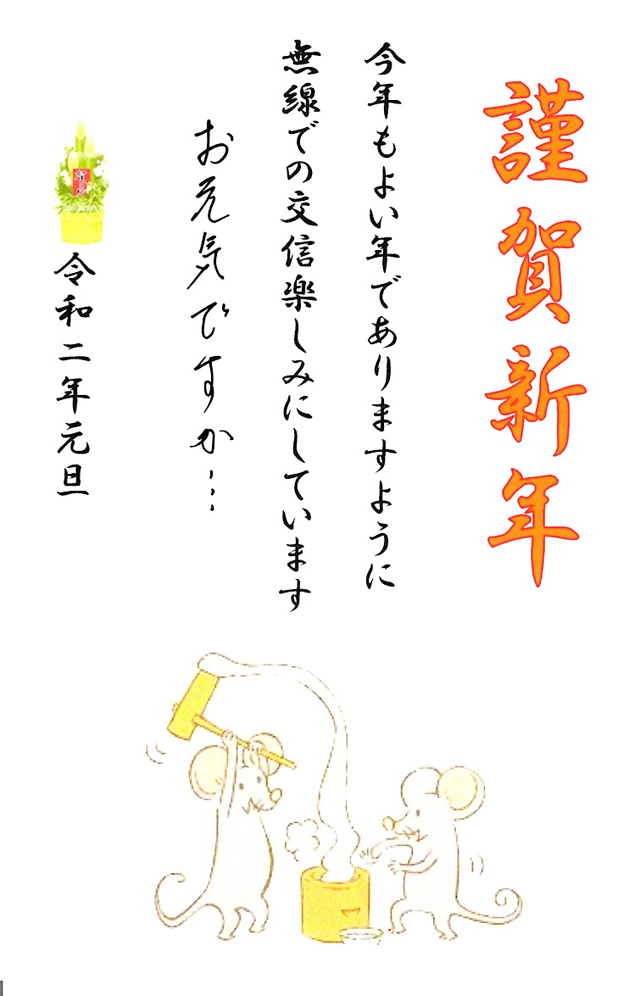 謹賀新年
今年もよい年でありますように
無線での交信楽しみにしています
お元気ですか…
令和二年元旦